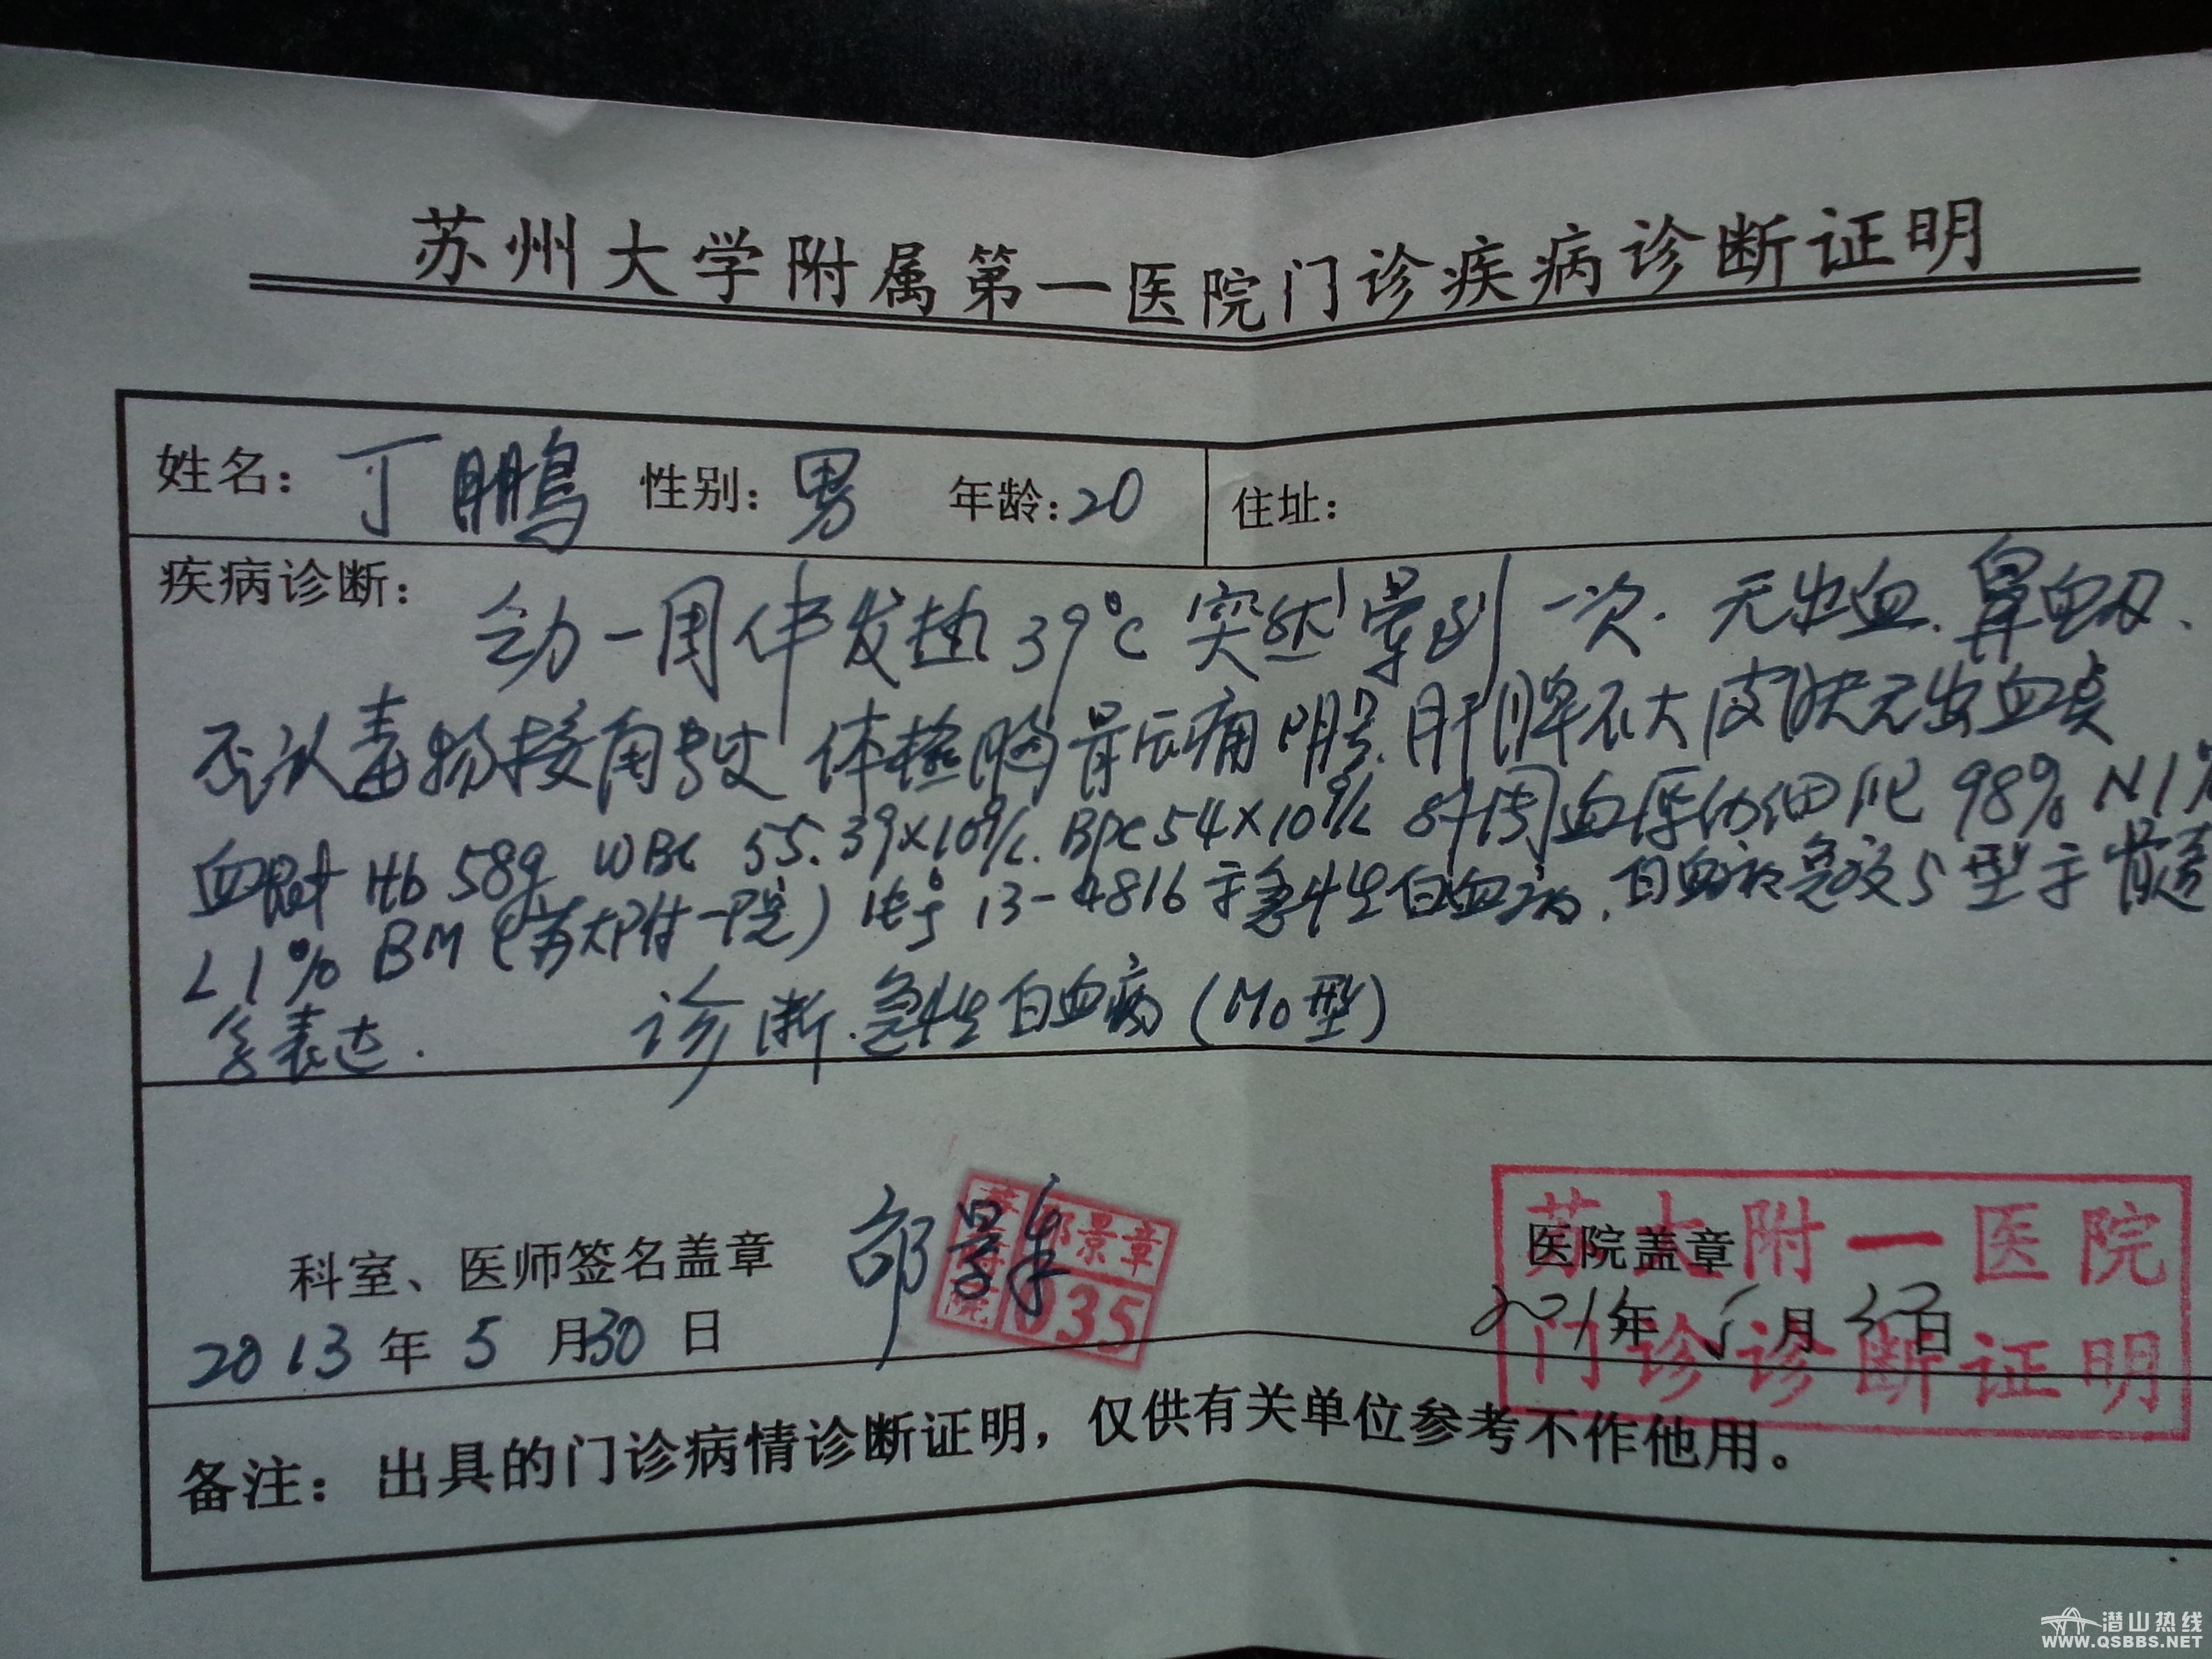 苏州大学附属第一医院门诊疾病诊断证明
姓名：丁鹏 性别：男 年龄：20 住址：
疾病诊断：
一周伴发热39℃ 突然晕倒一次. 无出血、鼻血
否认毒物接触史 体检胸骨压痛明显. 肝脾不大 皮肤无出血点
血象 Hb 58g WBC 55.39×10⁹/L. BPC 54×10⁹/L 外周血原幼细胞 98% N1%
L1% BM (苏大附一院) 13-4816 示急性白血病. 白血病免疫分型示 髓系
表达. 诊断. 急性白血病 (M₀型)
科室、医师签名盖章 邵景章
邵景章
035
2013年5月30日
医院盖章
苏大附一医院
年 月 30日
门诊诊断证明
备注：出具的门诊病情诊断证明，仅供有关单位参考不作他用。
潜山热线
WWW.QSBBS.NET